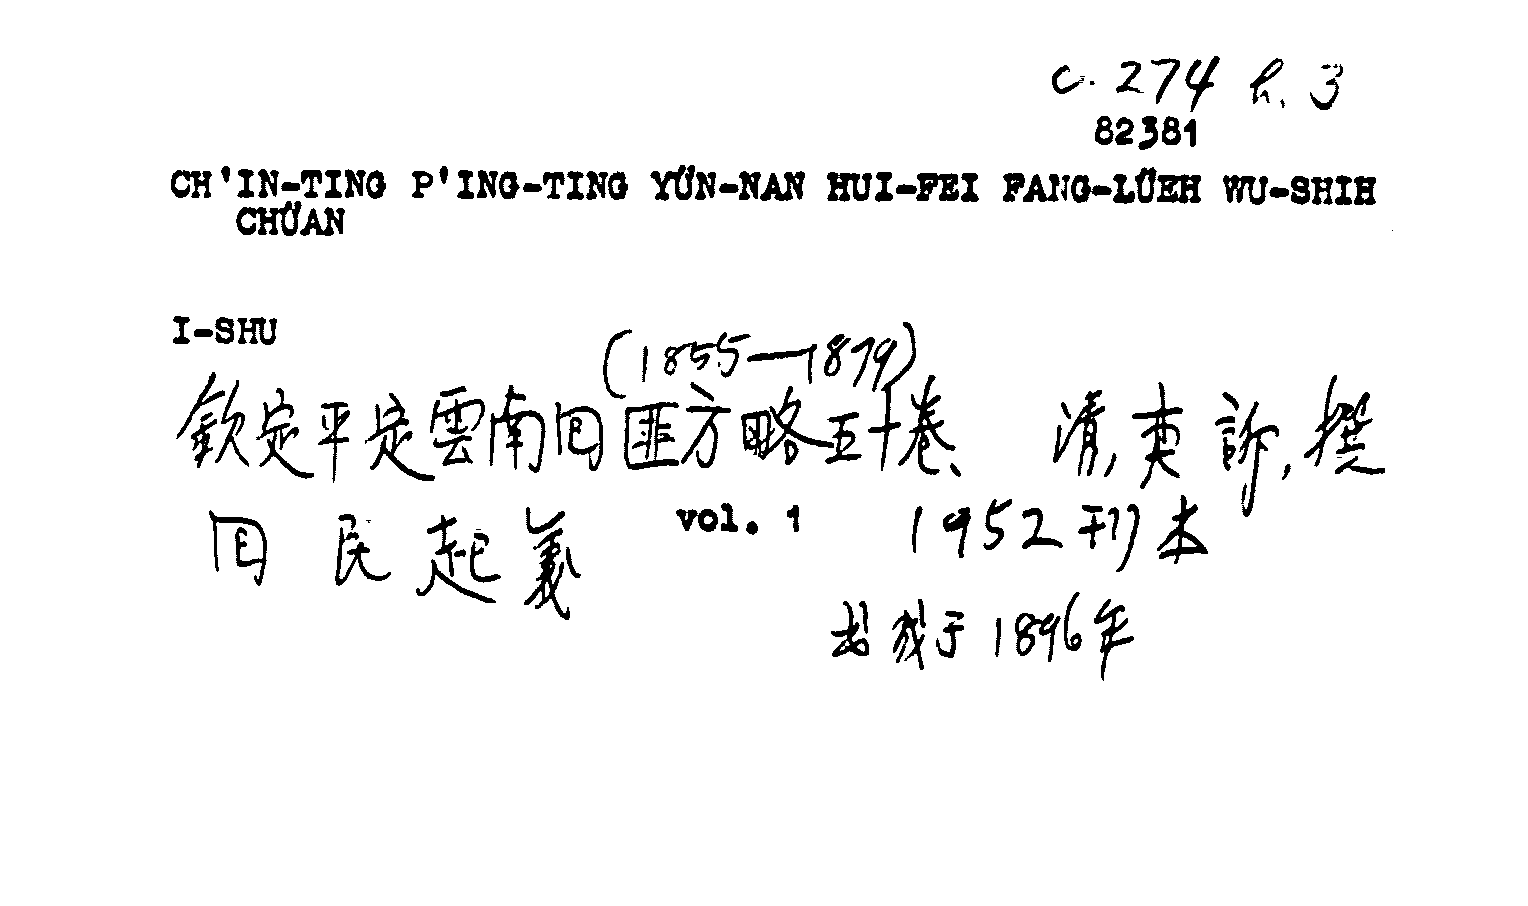 c. 274 h. 3
82381
CH'IN-TING P'ING-TING YÜN-NAN HUI-FEI FANG-LÜEH WU-SHIH
CHÜAN
I-SHU
(1855—1879)
欽定平定雲南回匪方略五十卷、 清,奕訢,撰
回民起義 vol. 1 1952刊本
书成于1896年